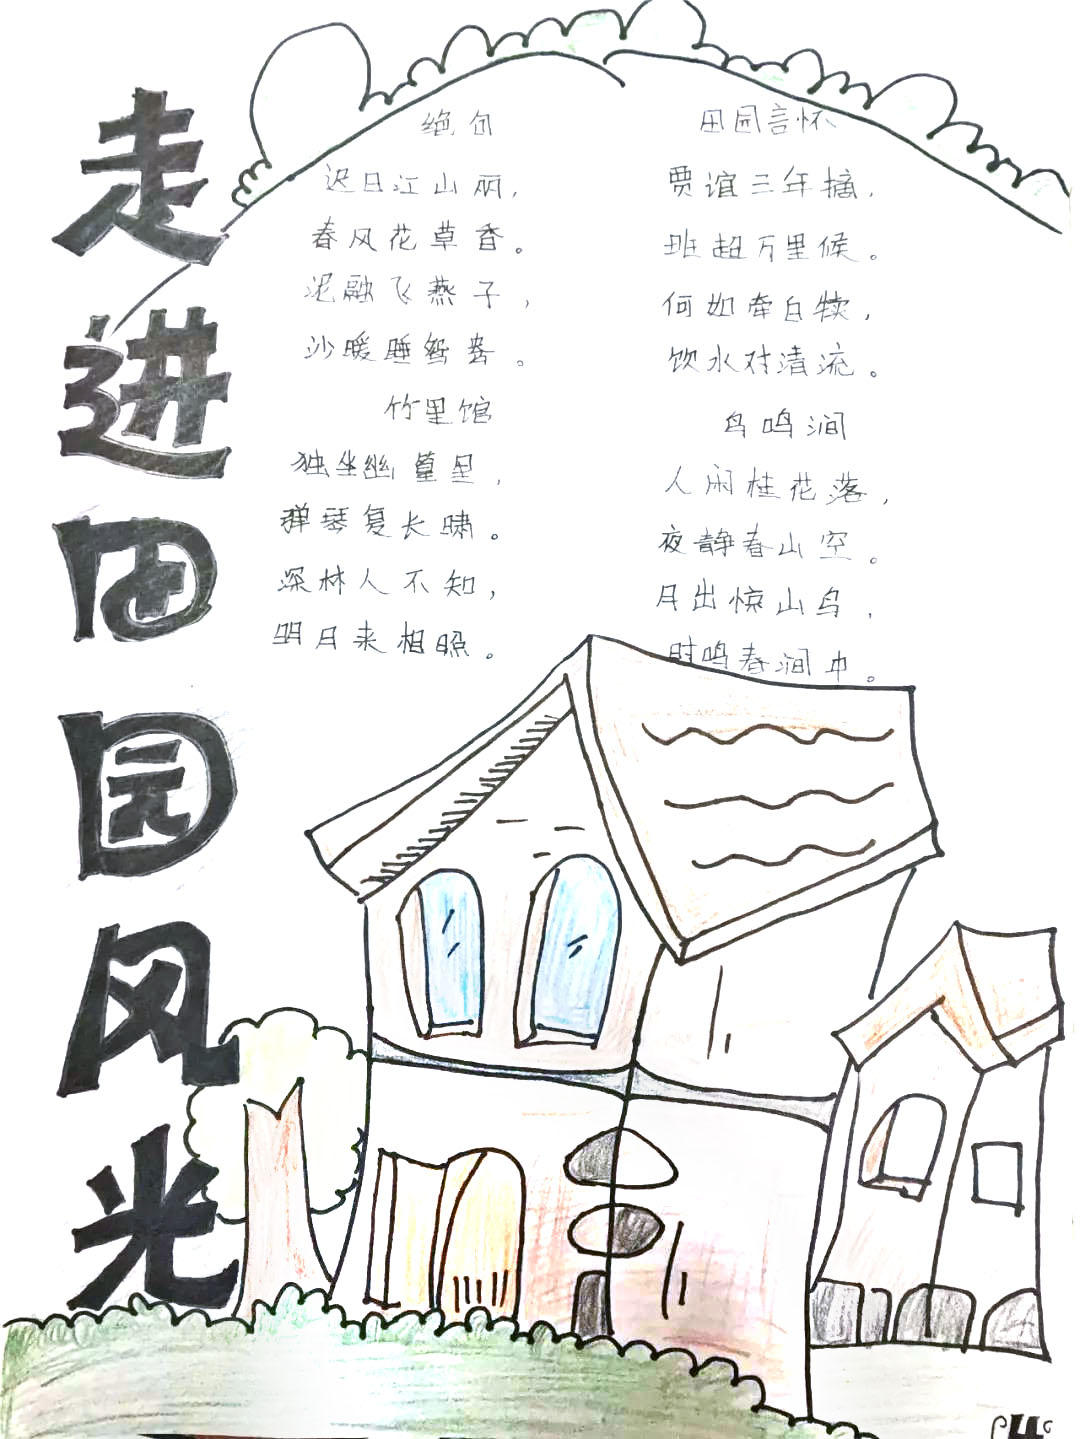 走进田园风光
绝句
迟日江山丽，
春风花草香。
泥融飞燕子，
沙暖睡鸳鸯。
竹里馆
独坐幽篁里，
弹琴复长啸。
深林人不知，
明月来相照。
田园言怀
贾谊三年摘，
班超万里候。
何如牵白犊，
饮水对清流。
鸟鸣涧
人闲桂花落，
夜静春山空。
月出惊山鸟，
时鸣春涧中。